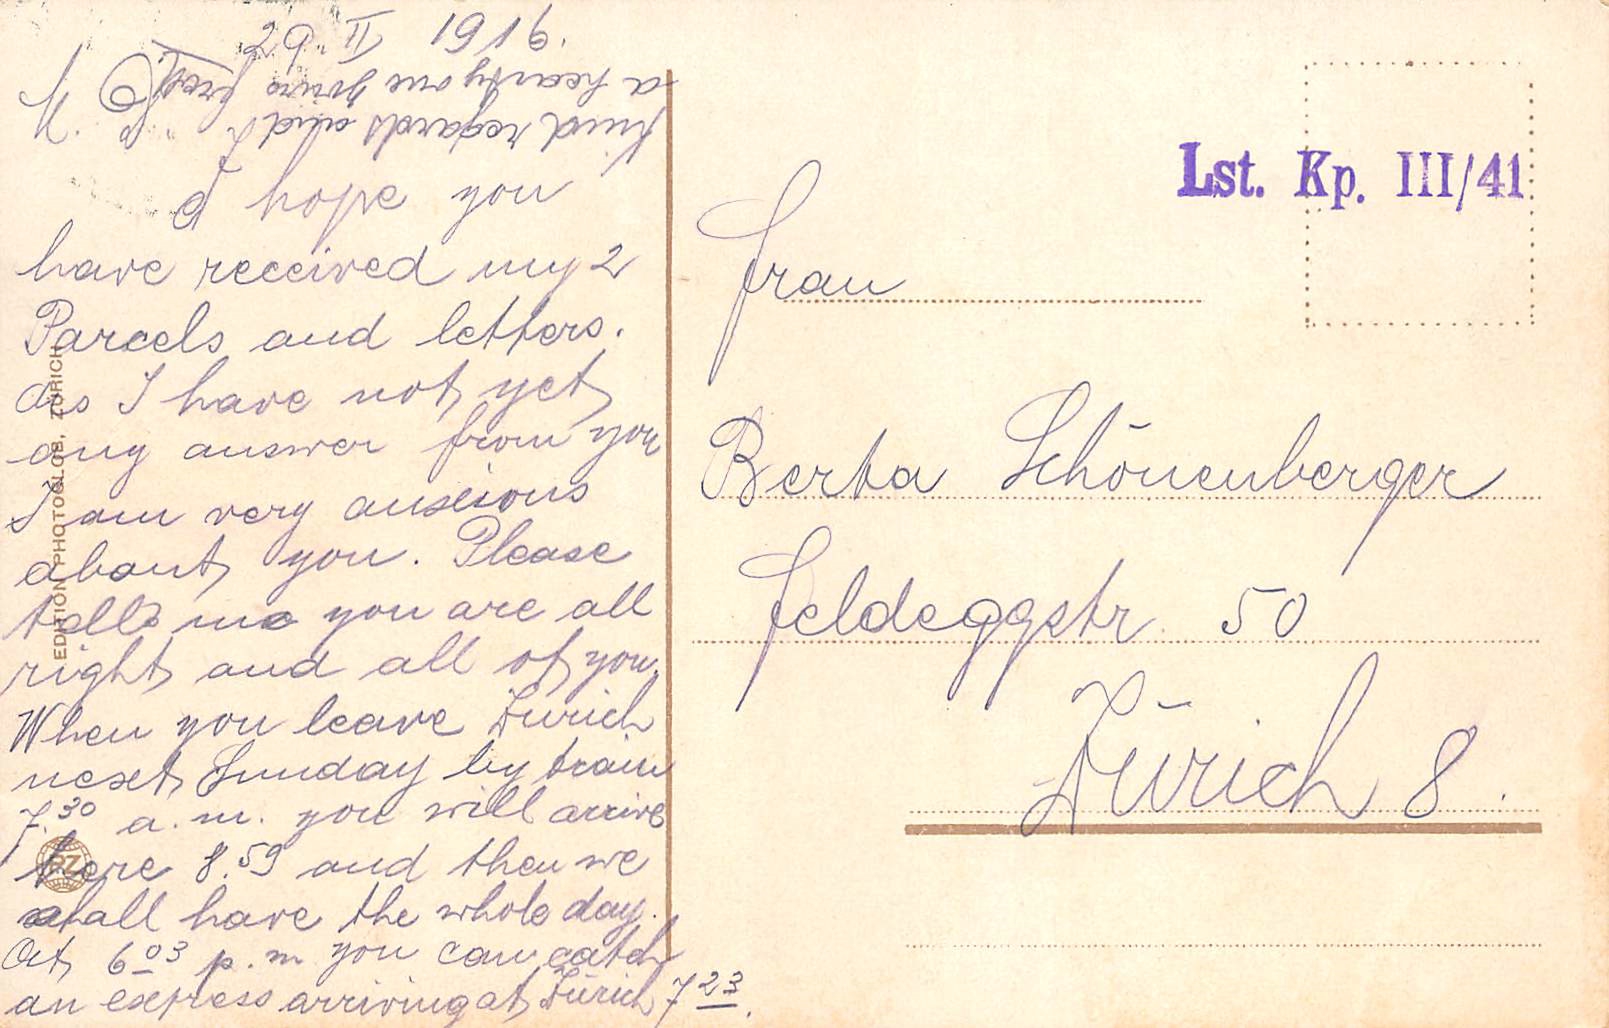 29. II 1916.
I hope you
have received my 2
Parcels and letters.
As I have not yet
any answer from you
I am very anxious
about you. Please
tell me you are all
right and all of you.
When you leave Zürich
next Sunday by train
7.30 a.m. you will arrive
here 8.59 and then we
shall have the whole day.
At 6 03 p.m you can catch
an express arriving at Zürich 7 23.
Kind regards and
a hearty one yours
EDITION PHOTOGLOB, ZÜRICH
PZ
Lst. Kp. III/41
Frau
Berta Schönenberger
Feldeggstr. 50
Zürich 8.